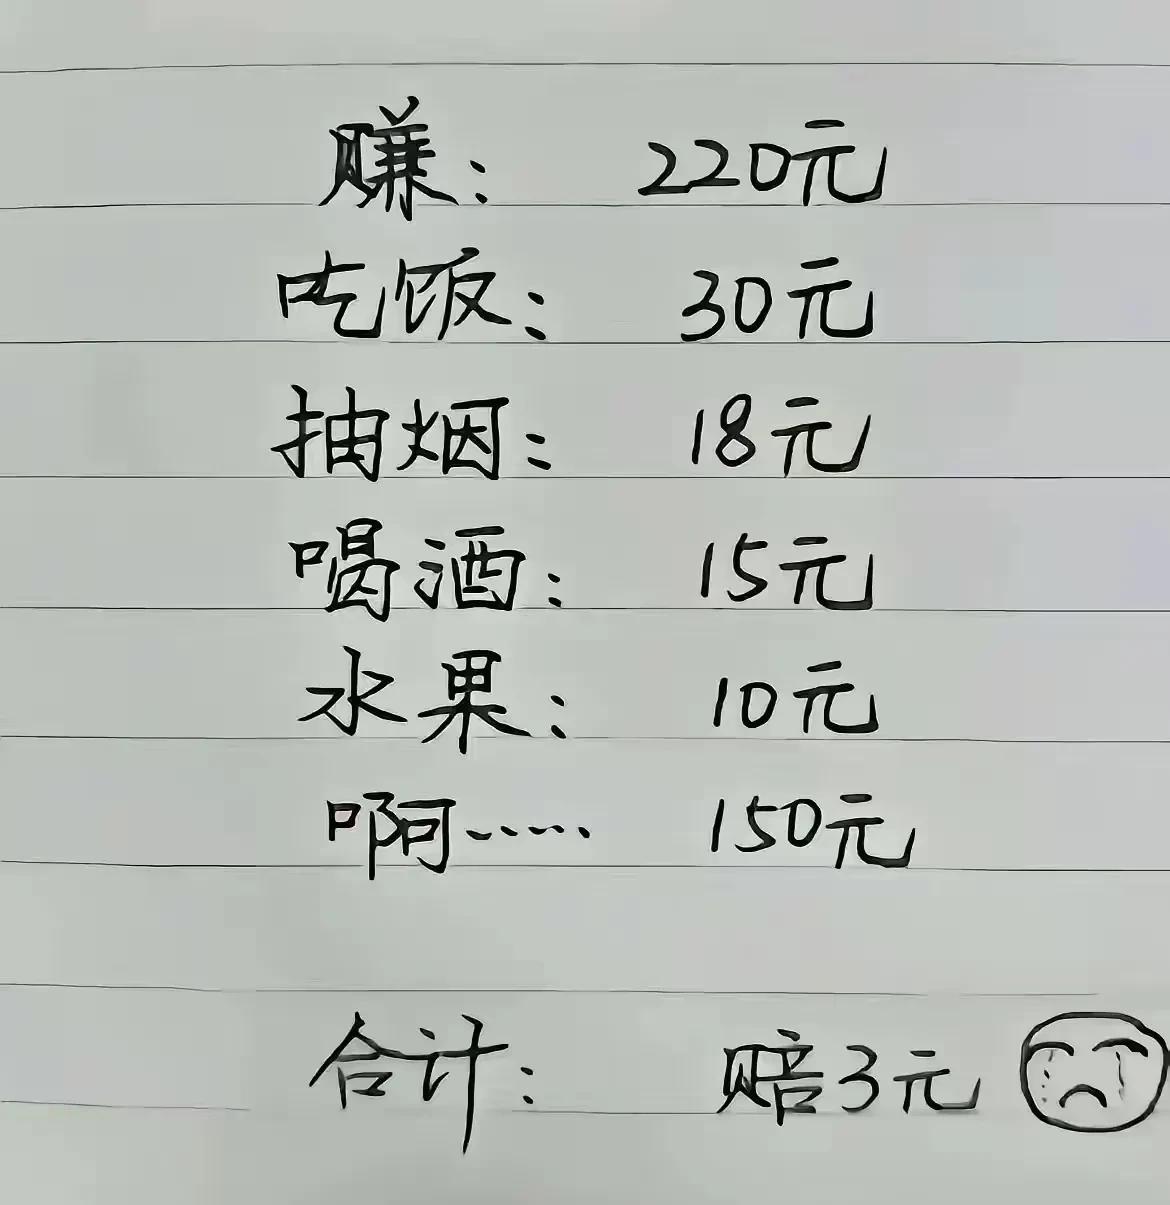 赚：220元
吃饭：30元
抽烟：18元
喝酒：15元
水果：10元
啊…… 150元
合计：赔3元